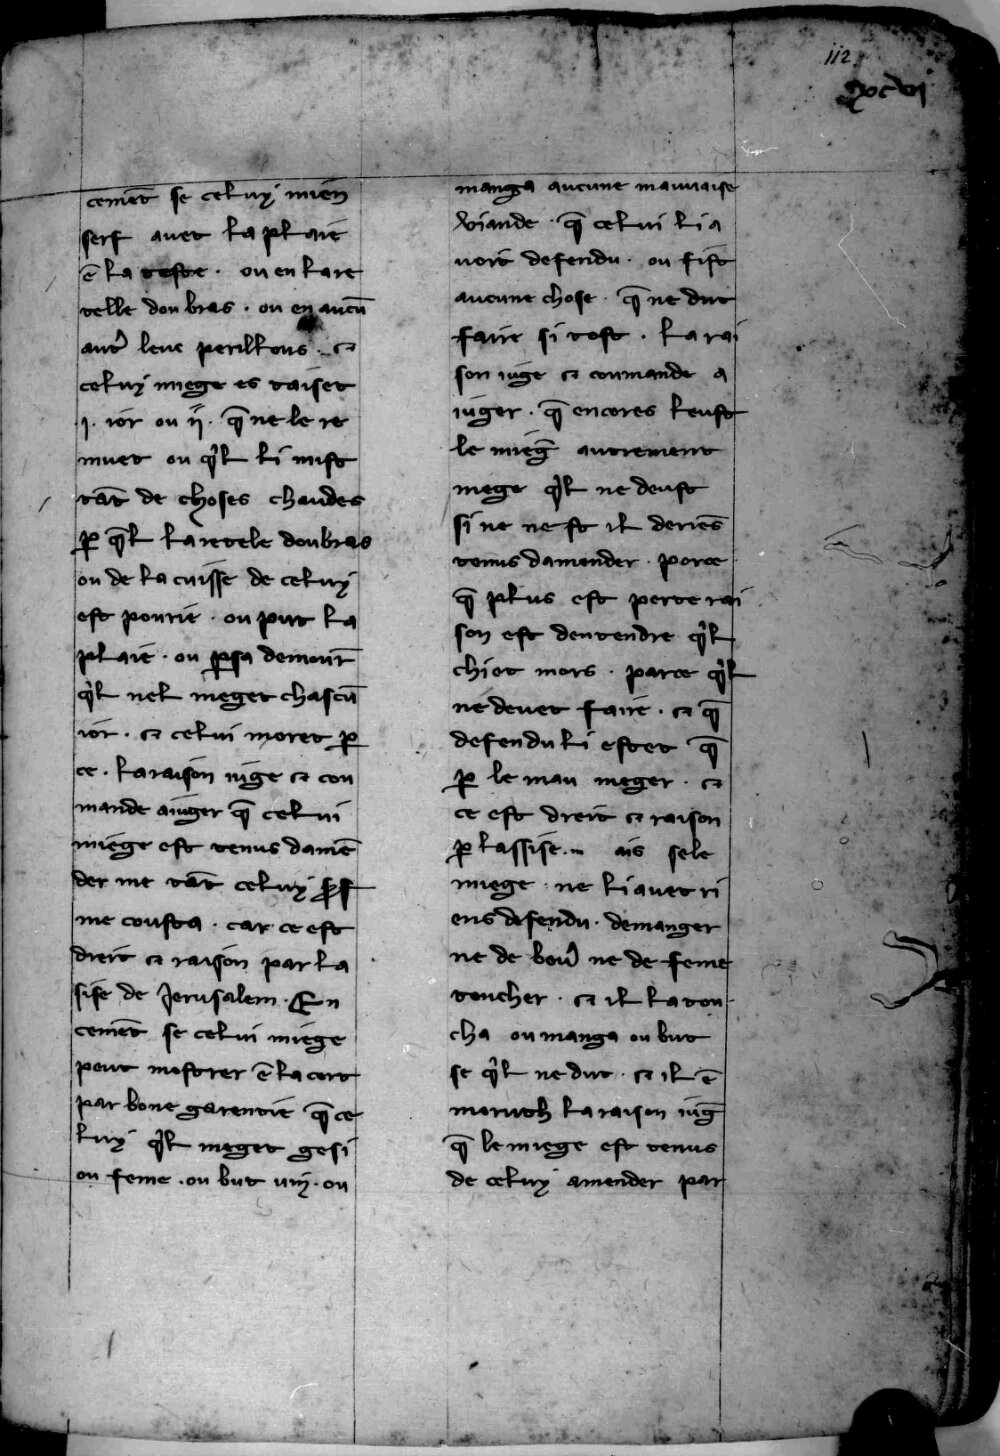 112
xcvi
cemēt se celuy mien
serf auet la plaie
ē la teste · ou en la re
telle dou bras · ou en aucū
autˀ leuc perillous · ⁊
celuy miege es taiset
·j· ior ou ij · q̄ ne le re
muet ou qˡl li mist
tāt de choses chaudes
ꝑ q̄l la retele dou bras
ou de la cuisse de celuy
est pourie · ou put la
plaie · ou ꝑ sa demour̄
qˡl nel meget chascū
ior · ⁊ celui moret ꝑ
ce · la raison iuge ⁊ cou
mande a iuger q̄ celui
miege est tenus damē
der me tāt celuy serf
me cousta · car ce est
dreit ⁊ raison par la
sise de Jerusalem · En
cemēt se celui miege
peut mostrer ē la cort
par bone garentie q̄ ce
luy qˡl meget gesi
ou feme · ou but vin · ou
manga aucune mauuaise
viande · q̄ celui li a
uoit defendu · ou fist
aucune chose · q̄ ne dut
faire si tost · la rai
son iuge ⁊ coumande a
iuger · q̄ encores leust
le mieḡ autrement
mege qˡl ne deust
si ne nest il de riēs
tenus damender · porce
q̄ plus est perte rai
son est dentendre qˡl
chiet mors · parce qˡl
ne deuet faire · ⁊ q̄
defendu li estet q̄
ꝑ le mau meger · ⁊
ce est dreit ⁊ raison
ꝑ lassise · ais se le
miege · ne li auet ri
ens defendu · de manger
ne de beuˀ ne de feme
toucher · ⁊ il la tou
cha ou manga ou but
se qˡl ne dut · ⁊ il ē
moruth la raison iuḡ
q̄ le miege est tenus
de celuy amender par